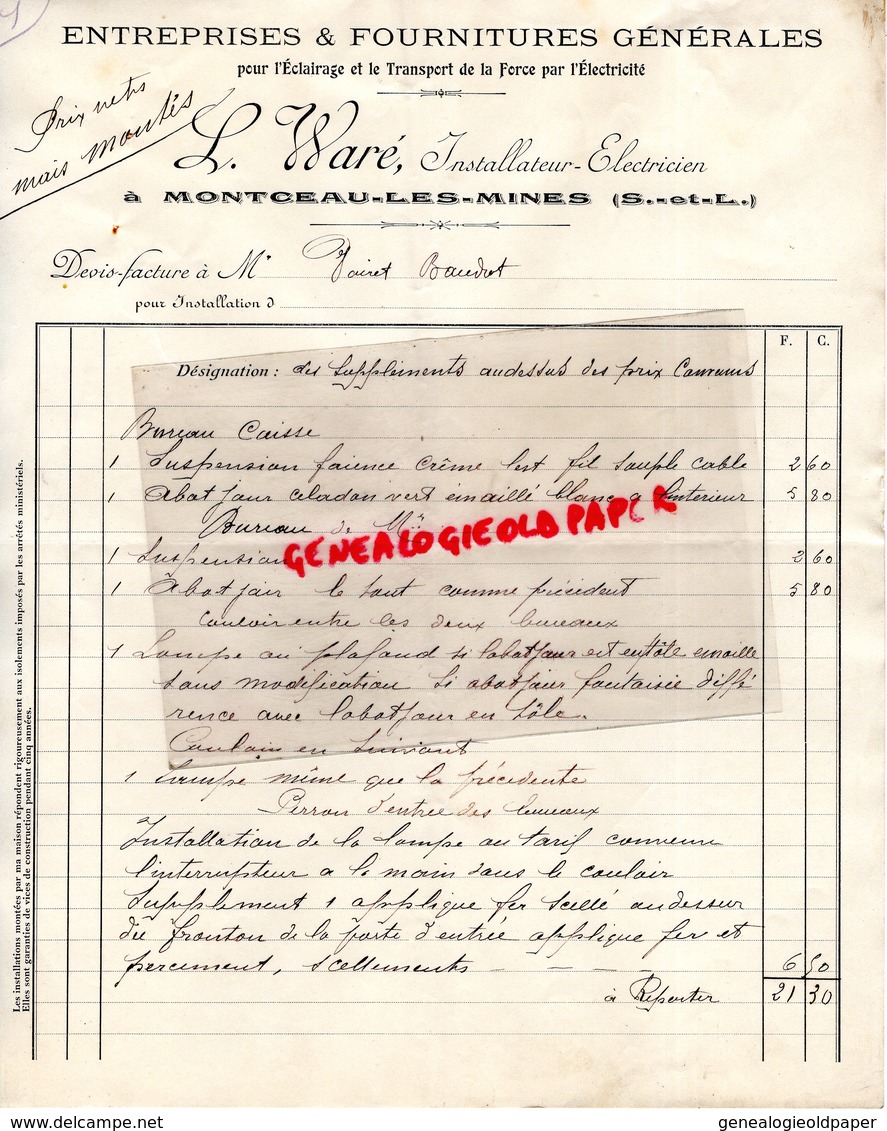 ENTREPRISES & FOURNITURES GÉNÉRALES
pour l'Éclairage et le Transport de la Force par l'Électricité
Prix nets
mais montés
L. Waré, Installateur-Electricien
à MONTCEAU-LES-MINES (S.-et-L.)
Devis-facture à Mr Baudot
pour Installation d
F. C.
Désignation : des suppléments au dessus des prix Convenus
Bureau Caisse
1 Suspension faience crême fil souple cable 2 60
1 Abat jour celadon vert émaillé blanc a linterieur 5 80
Bureau de Mr
GENEALOGIEOLDPAPER
1 Suspension 2 60
1 Abat jour le tout comme précident 5 80
Couloir entre les deux bureaux
1 Lampe au plafond si labat jour est en tôle emaille
sans modification si abat jour fantaisie diffé
rence avec labat jour en tôle.
Couloir en suivant
1 Lampe même que la précedente
Perron d'entree des bureaux
Installation de la lampe au tarif convenu
l'interrupteur a la main dans le couloir
Supplement 1 applique fer scellé au dessus
du fronton de la porte d'entrée applique fer et
percement, scellements - - - - 6 50
à Reporter 21 30
Les installations montées par ma maison répondent rigoureusement aux isolements imposés par les arrêtés ministériels.
Elles sont garanties de vices de construction pendant cinq années.
delcampe.net
genealogieoldpaper